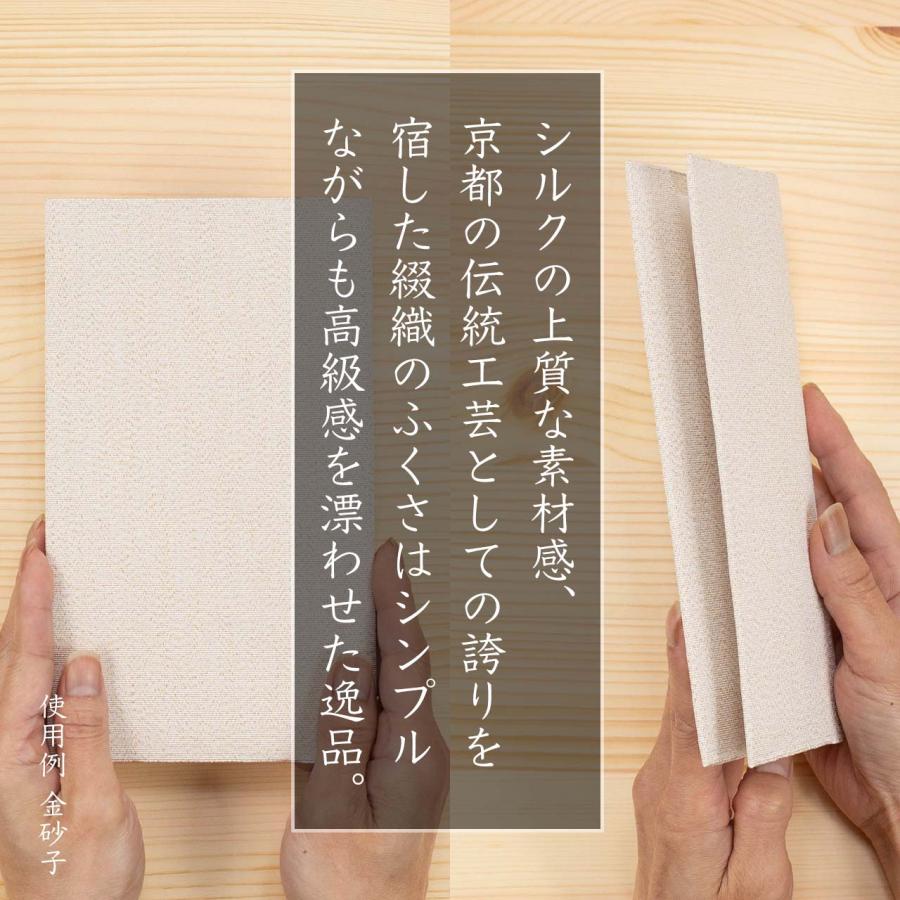 シルクの上質な素材感、
京都の伝統工芸としての誇りを
宿した綴織のふくさはシンプル
ながらも高級感を漂わせた逸品。
使用例 金砂子